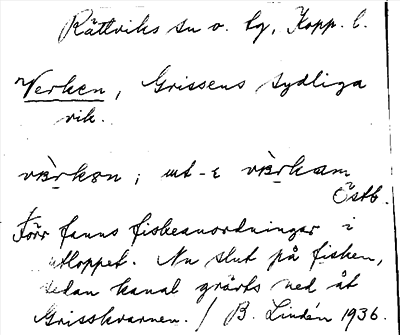 Rättviks sn o. tg, Kopp. l.
Verken, Grissens sydliga
vik.
værkən; ut-i værkam
Östb.
Förr fanns fiskeanordningar i
utloppet. Nu slut på fisken,
sedan kanal grävts ned åt
Grisskvarnen. / B. Lindén 1936.